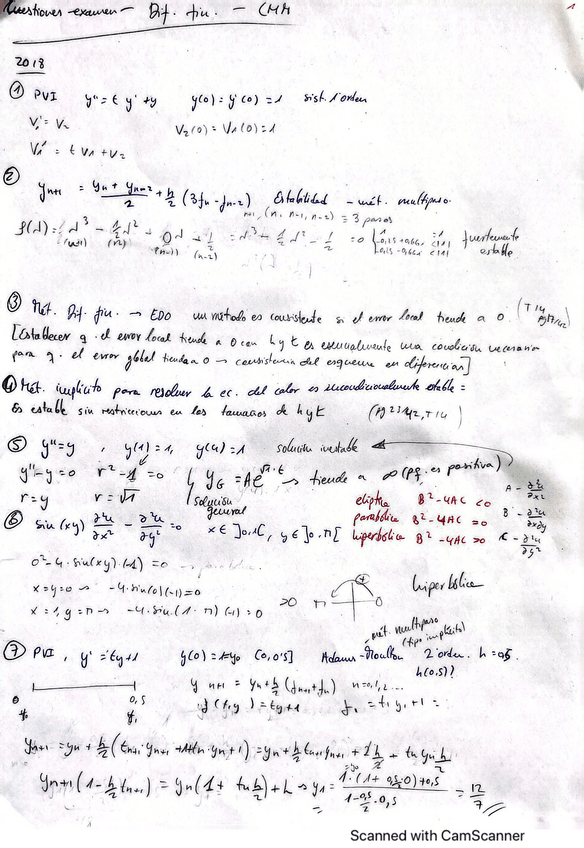 Cuestiones examen - Dif. fin. - CMM
1
2018
① PVI y'' = t y' + y y(0) = y'(0) = 1 sist. 1º orden
V₁' = V₂ V₂(0) = V₁(0) = 1
V₁' = t V₁ + V₂
② yₙ₊₁ = (yₙ + yₙ₋₂)/2 + h/2 (3fₙ - fₙ₋₂) Estabilidad - mét. multipaso
n+1, (n, n-1, n-2) = 3 pasos
ρ(λ) = λ³ - 1/2 λ² - 0λ - 1/2 = λ³ - 1/2 λ² - 1/2 = 0 fuertemente estable
(n+1) (n) (n-1) (n-2)
③ Mét. Dif. fin. → EDO un método es consistente si el error local tiende a 0 (T14
[Establecer q. el error local tiende a 0 con h y k es esencialmente una condición necesaria
para q. el error global tienda a 0 → consistencia del esquema en diferencias]
④ Mét. implícito para resolver la ec. del calor es incondicionalmente estable =
Es estable sin restricciones en los tamaños de h y k (pg 23/42, T14)
⑤ y'' = y , y(1) = 1, y(4) = 1 solución inestable
y'' - y = 0 r² - 1 = 0 y_G = Ae^{√1·t} → tiende a ∞ (pq. es positiva)
r = y r = √1 solución general
elíptica B² - 4AC < 0 A - ∂²u/∂x²
parabólica B² - 4AC = 0 B - ∂²u/∂x∂y
hiperbólica B² - 4AC > 0 C - ∂²u/∂y²
⑥ sin(xy) ∂²u/∂x² - ∂²u/∂y² = 0 x ∈ ]0,1[, y ∈ ]0,π[
0² - 4·sin(xy)·(-1) = 0
x = y = 0 → -4·sin(0)(-1) = 0
x = 1, y = π → -4·sin(1·π)(-1) = 0
>0 π + 0 hiperbólica
⑦ PVI, y' = ty + 1 y(0) = 1 = y₀ [0, 0'5] Adams-Moulton 2º orden. h = 0,5.
mét. multipaso (tipo implícito)
h(0.5)?
0 0,5
t₀ t₁
yₙ₊₁ = yₙ + h/2 (fₙ₊₁ + fₙ) n = 0, 1, 2, ...
f(t,y) = ty + 1 f₁ = t₁ y₁ + 1 =
yₙ₊₁ = yₙ + h/2 (tₙ₊₁·yₙ₊₁ + 1 + tₙ·yₙ + 1) = yₙ + h/2 tₙ₊₁ yₙ₊₁ + 2 h/2 + tₙ yₙ h/2
yₙ₊₁ (1 - h/2 tₙ₊₁) = yₙ (1 + tₙ h/2) + h → y₁ = (1·(1 + 0,5/2·0) + 0,5)/(1 - 0,5/2·0,5) = 12/7
Scanned with CamScanner